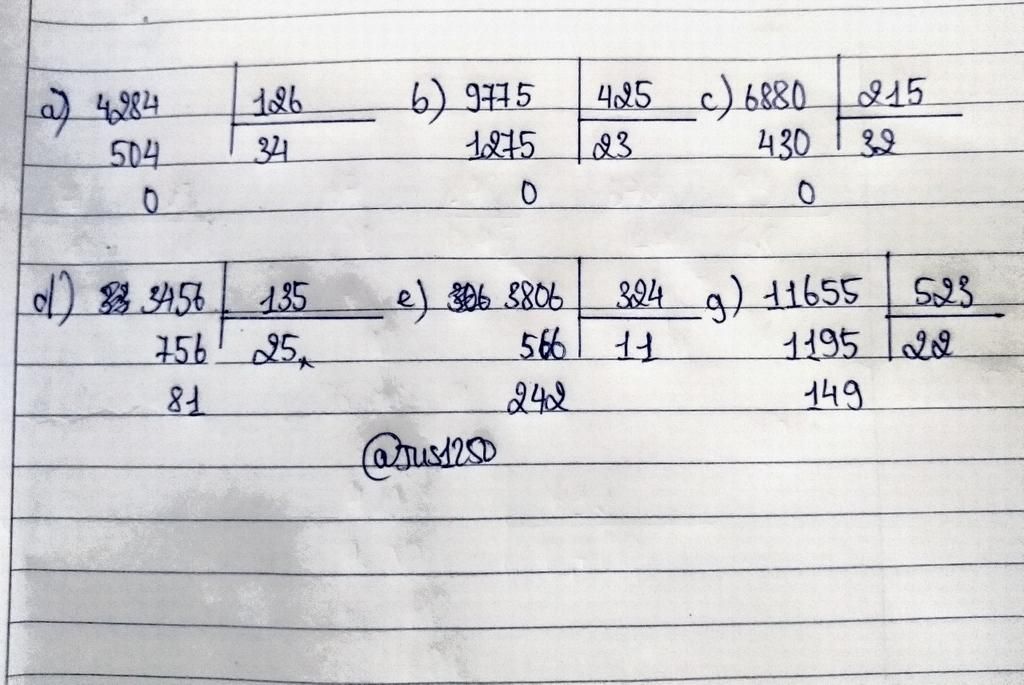 a) 4284 126 b) 9775 425 c) 6880 215
504 34 1275 23 430 32
0 0 0
d) 3456 135 e) 3806 324 g) 11655 523
756 25 566 11 1195 22
81 242 149
@Jus1250